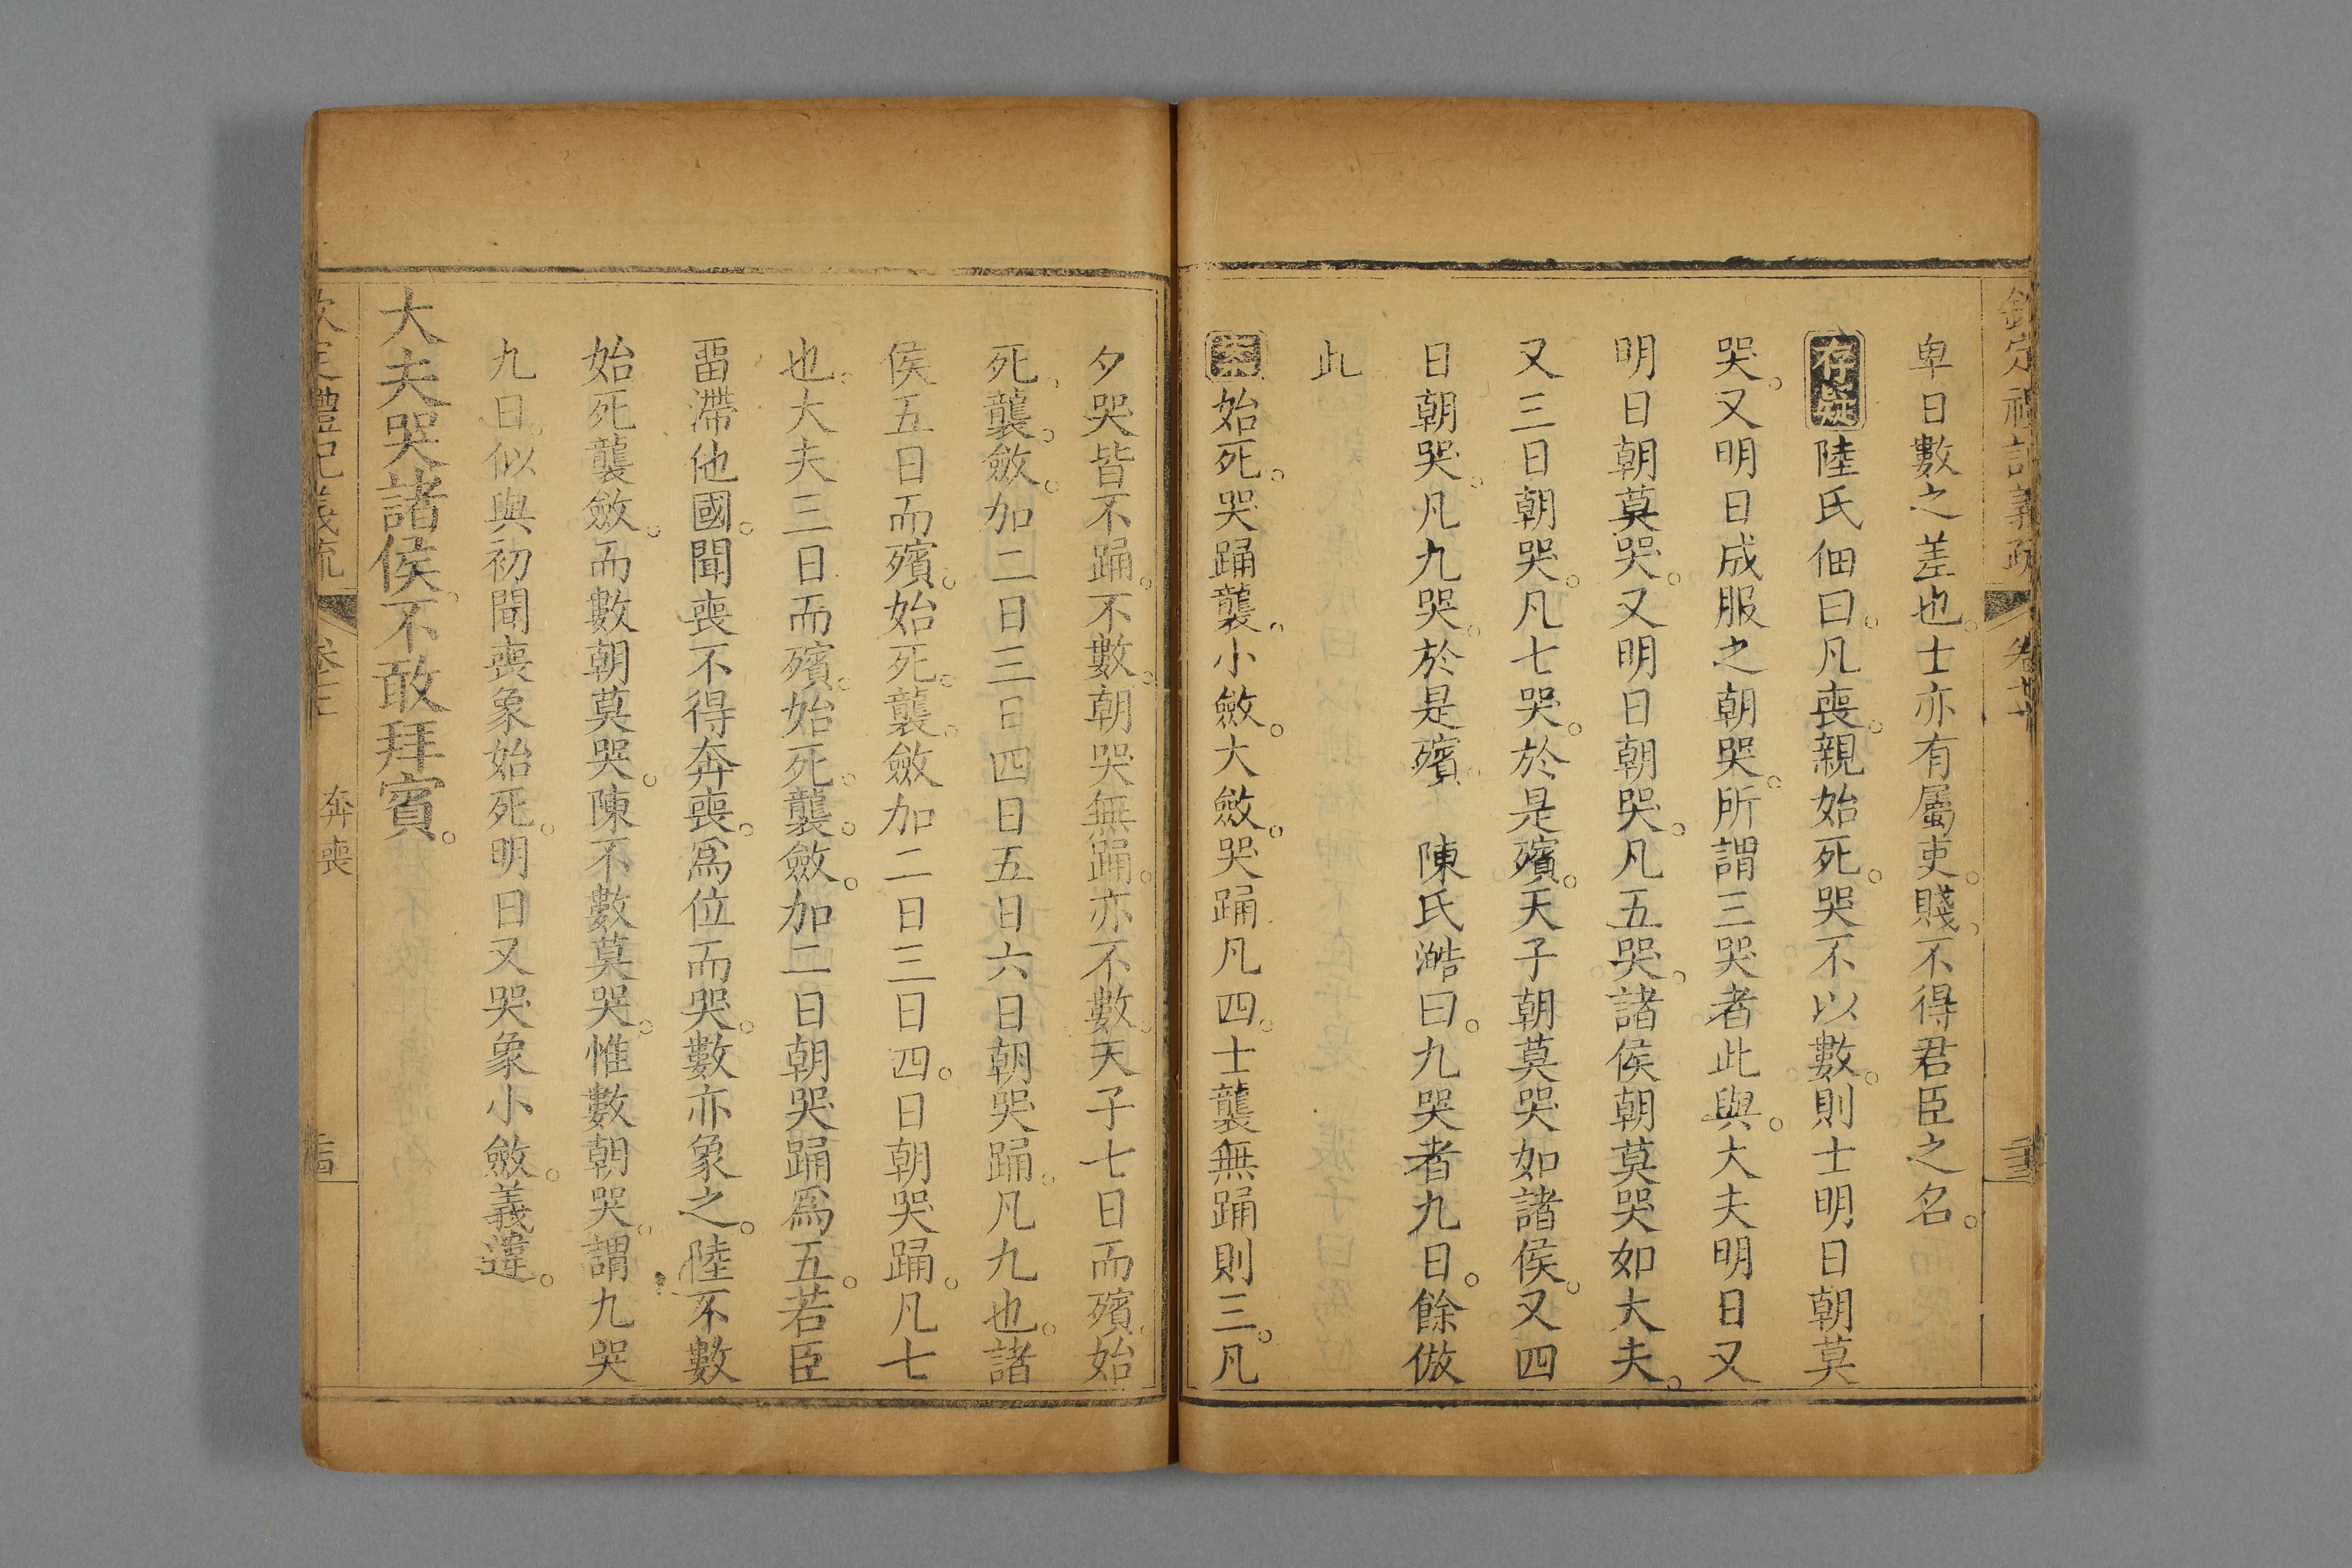 卑日數之差也。士亦有屬吏。賤、不得君臣之名。
存疑陸氏佃曰。凡喪。親始死。哭不以數。則士明日朝莫
哭。又明日成服之朝哭。所謂三哭者此與。大夫明日又
明日朝莫哭。又明日朝哭。凡五哭。諸侯朝莫哭如大夫。
又三日朝哭。凡七哭。於是殯。天子朝莫哭如諸侯。又四
日朝哭。凡九哭。於是殯。 陳氏澔曰。九哭者九日。餘倣
此
始死。哭踊襲。小斂。大斂。哭踊凡四。士襲無踊則三。凡
夕哭皆不踊。不數。朝哭無踊。亦不數。天子七日而殯。始
死、襲。斂。加二日三日四日五日六日朝哭踊。凡九也。諸
侯五日而殯。始死。襲。斂加二日三日四。日朝哭踊。凡七
也。大夫三日而殯。始死。襲。斂。加二日朝哭踊爲五。若臣
畱滯他國。聞喪不得奔喪。爲位而哭。數亦象之。陸不數
始死襲斂。而數朝莫哭。陳不數莫哭。惟數朝哭。謂九哭
九日。似與初聞喪象始死。明日又哭象小斂。義違。
大夫哭諸侯、不敢拜賓。
奔喪